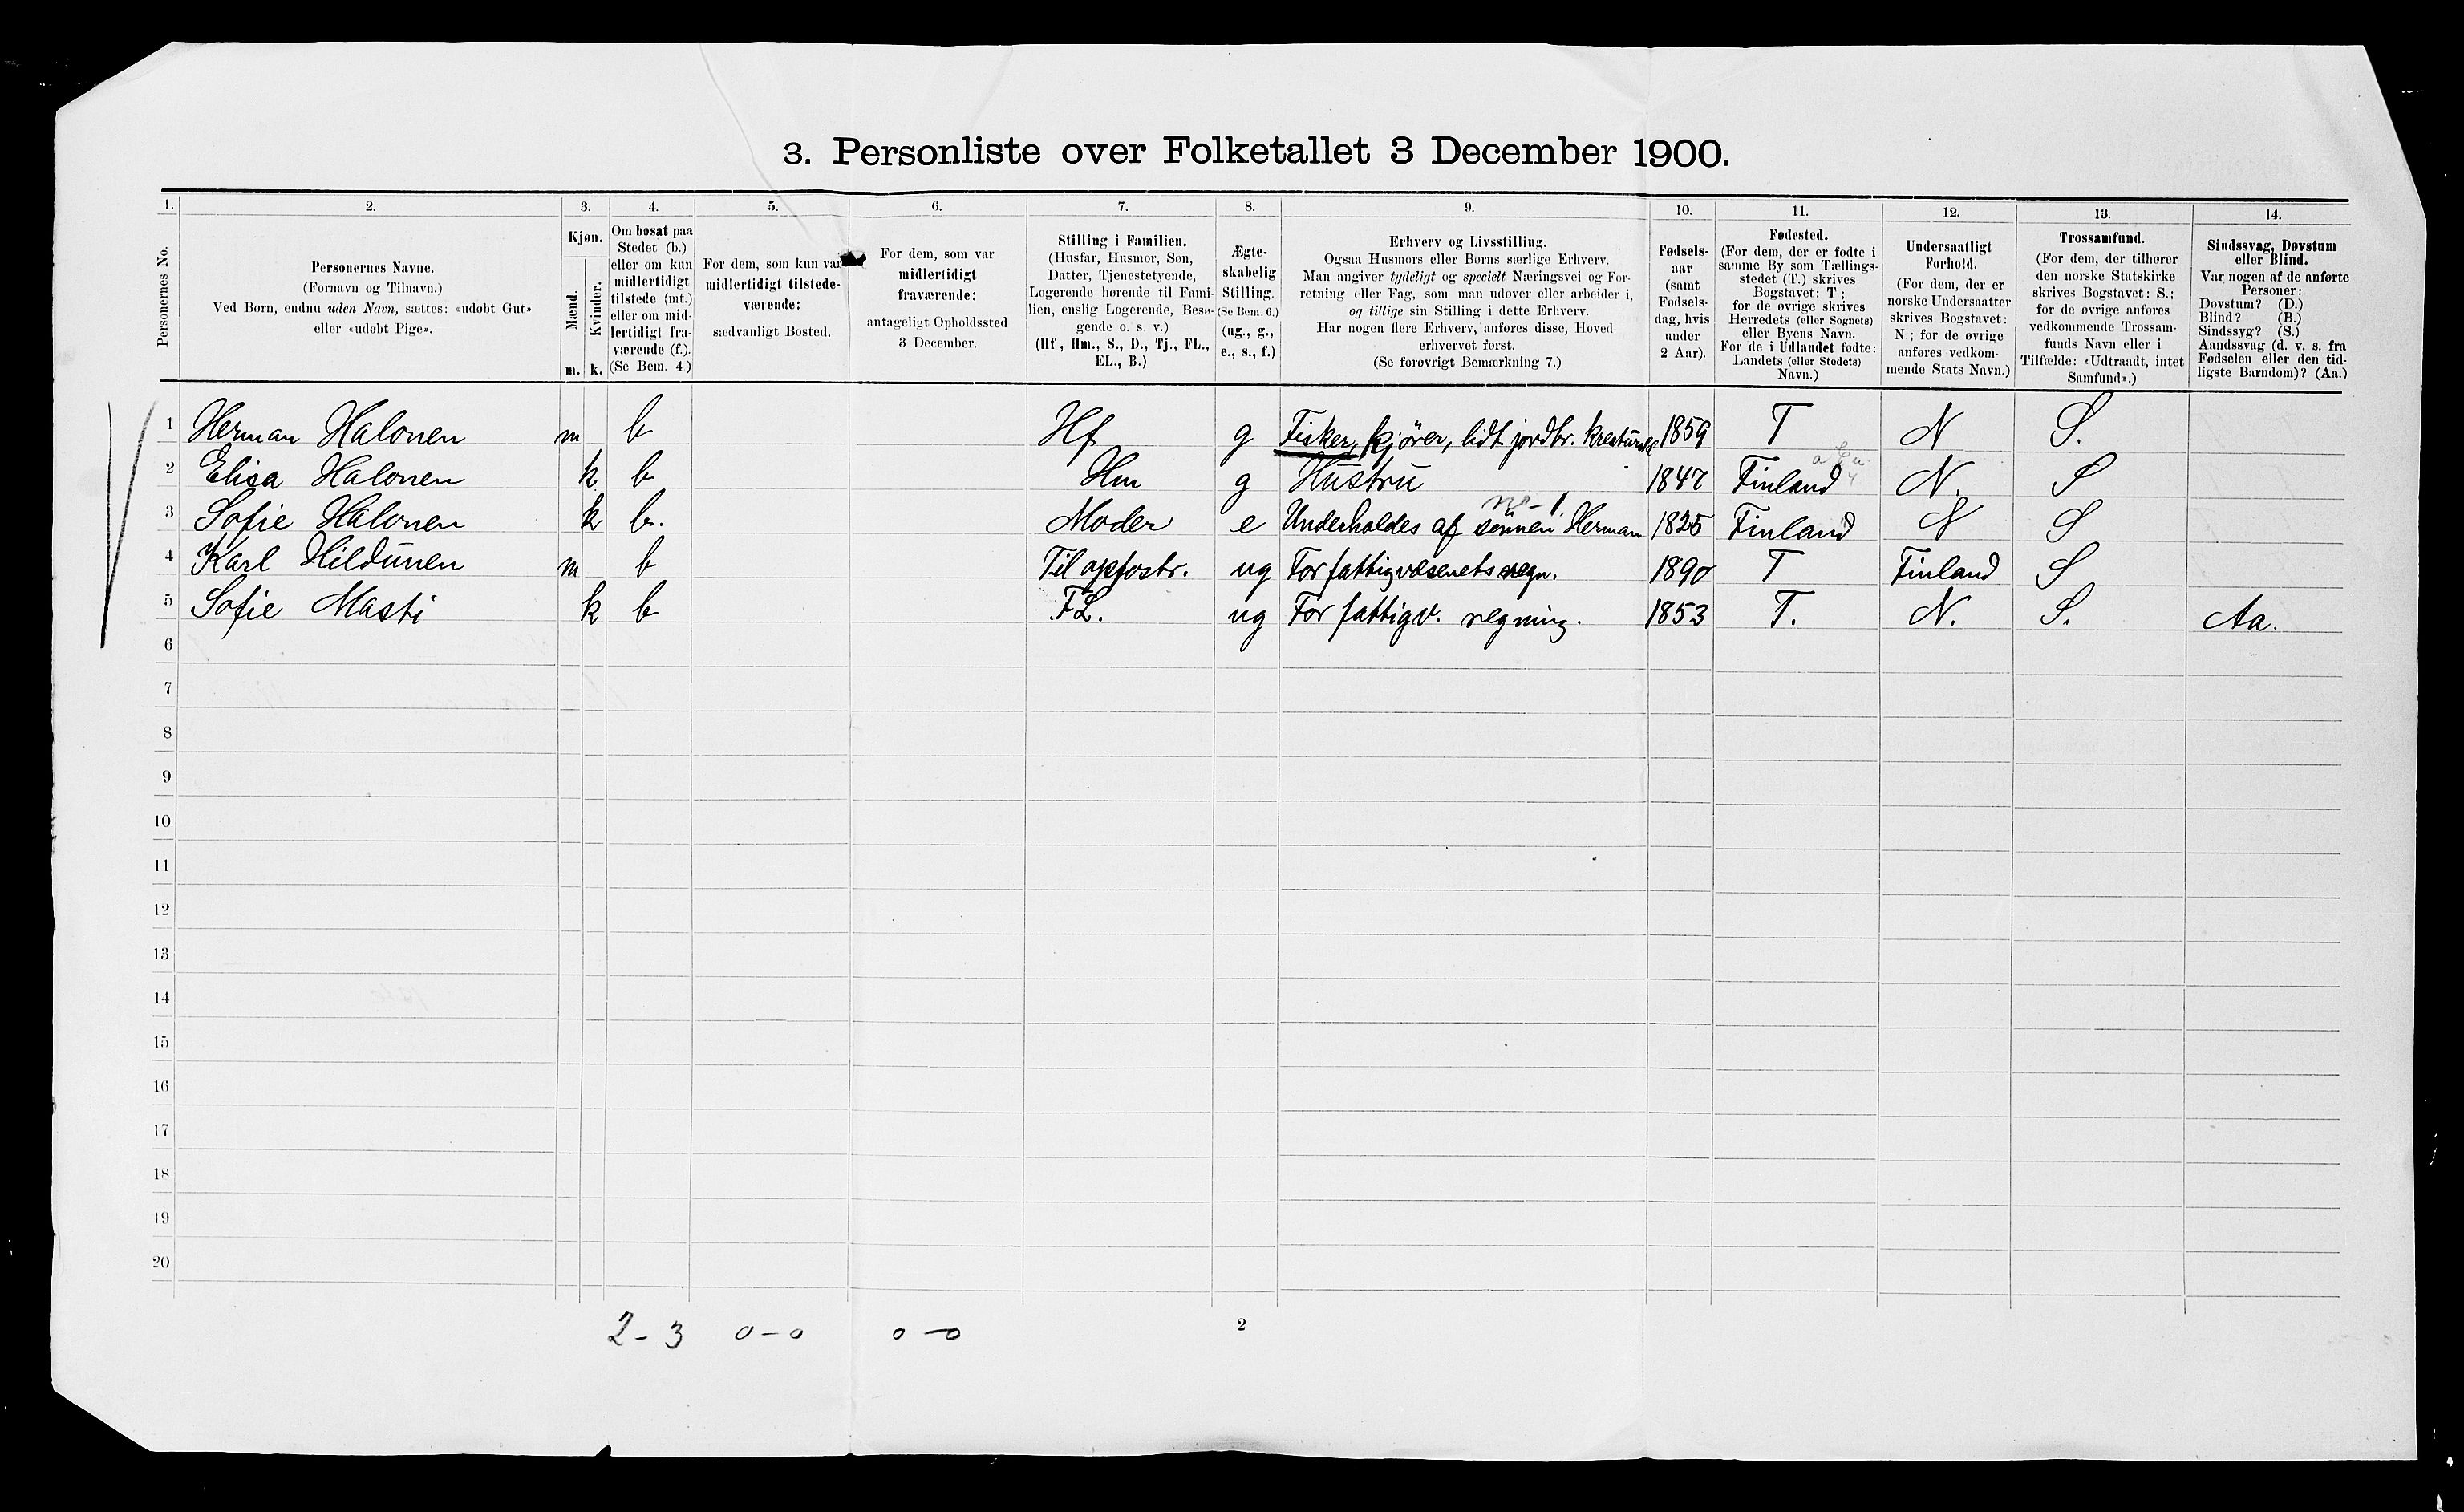 3. Personliste over Folketallet 3 December 1900.
1. 2. 3. 4. 5. 6. 7. 8. 9. 10. 11. 12. 13. 14.
Personernes No.
Personernes Navne.
(Fornavn og Tilnavn.)
Ved Børn, endnu uden Navn, sættes: «udøbt Gut»
eller «udøbt Pige».
Kjøn.
Mænd.
Kvinder.
m. k.
Om bosat paa
Stedet (b.)
eller om kun
midlertidigt
tilstede (mt.)
eller om mid-
lertidigt fra-
værende (f.).
(Se Bem. 4)
For dem, som kun var
midlertidigt tilstede-
værende:
sædvanligt Bosted.
For dem, som var
midlertidigt
fraværende:
antageligt Opholdssted
3 December.
Stilling i Familien.
(Husfar, Husmor, Søn,
Datter, Tjenestetyende,
Logerende hørende til Fami-
lien, enslig Logerende, Besø-
gende o. s. v.)
(Hf., Hm., S., D., Tj., FL.,
EL., B.)
Ægte-
skabelig
Stilling.
(Se Bem. 6.)
(ug., g.,
e., s., f.)
Erhverv og Livsstilling.
Ogsaa Husmors eller Børns særlige Erhverv.
Man angiver tydeligt og specielt Næringsvei og For-
retning eller Fag, som man udøver eller arbeider i,
og tillige sin Stilling i dette Erhverv.
Har nogen flere Erhverv, anføres disse, Hoved-
erhvervet først.
(Se forøvrigt Bemærkning 7.)
Fødsels-
aar
(samt
Fødsels-
dag, hvis
under
2 Aar).
Fødested.
(For dem, der er fødte i
samme By som Tællings-
stedet (T.) skrives
Bogstavet: T;
for de øvrige skrives
Herredets (eller Sognets)
eller Byens Navn.
For de i Udlandet fødte:
Landets (eller Stedets)
Navn.)
Undersaatligt
Forhold.
(For dem, der er
norske Undersaatter
skrives Bogstavet:
N.; for de øvrige
anføres vedkom-
mende Stats Navn.)
Trossamfund.
(For dem, der tilhører
den norske Statskirke
skrives Bogstavet: S.;
for de øvrige anføres
vedkommende Trossam-
funds Navn eller i
Tilfælde: «Udtraadt, intet
Samfund».)
Sindssvag, Døvstum
eller Blind.
Var nogen af de anførte
Personer:
Døvstum? (D.)
Blind? (B.)
Sindssyg? (S.)
Aandssvag (d. v. s. fra
Fødselen eller den tid-
ligste Barndom)? (Aa.)
1 Herman Halonen m b Hf g Fisker, kjører, lidt jordbr. 1859 T N S.
2 Elisa Halonen k b Hm g Hustru 1847 Finland N. S
no-1
3 Sofie Halonen k b. Moder e Underholdes af sønnen Herman 1825 Finland N S
4 Karl Hildunen m b Til opfostr. ug For fattigvæsenets regn. 1890 T Finland S
5 Sofie Masti k b FL. ug For fattigv. regning. 1853 T. N. S. Aa.
6
7
8
9
10
11
12
13
14
15
16
17
18
19
20
2-3 0-0 0-0 2